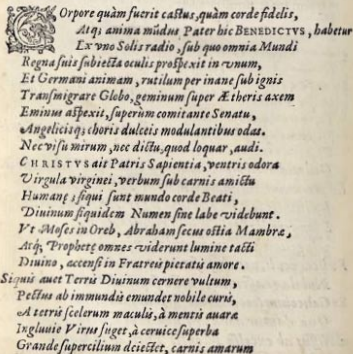 COrpore quàm fuerit castus, quàm corde fidelis,
Atq; anima mũdus Pater hic BENEDICTVS, habetur
Ex vno Solis radio, sub quo omnia Mundi
Regna suis subiecta oculis prospexit in vnum,
Et Germani animam, rutilum per inane sub ignis
Transmigrare Globo, geminum super Ætheris axem
Eminus aspexit, superum comitante Senatu,
Angelicisq; choris dulceis modulantibus odas.
Nec visu mirum, nec dictu, quod loquar, audi.
CHRISTVS ait Patris Sapientia, ventris odora
Virgula virginei, verbum sub carnis amictu
Humanę; siqui sunt mundo corde Beati,
Diuinum siquidem Numen sine labe videbunt.
Vt Moses in Oreb, Abraham secus ostia Mambrę,
Atq; Prophetę omnes viderunt lumine tacti
Diuino, accensi in Fratreis pietatis amore.
Siquis auet Terris Diuinum cernere vultum,
Pectus ab immundis emundet nobile curis,
A tetris scelerum maculis, à mentis auarę
Ingluuie Virus fuget, à ceruice superba
Grande supercilium deiectet, carnis amarum